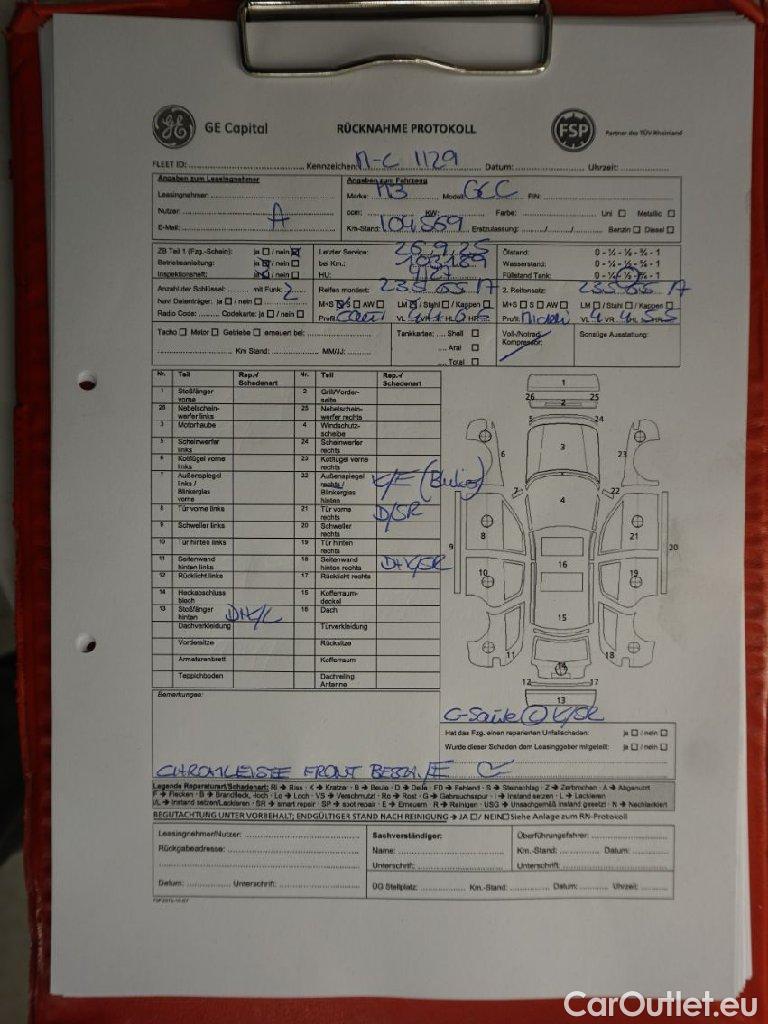 GE Capital
RÜCKNAHME PROTOKOLL
FSP Partner des TÜV Rheinland
FLEET ID: Kennzeichen: M-C 1129 Datum: Uhrzeit:
Angaben zum Leasingnehmer
Angaben zum Fahrzeug
Leasingnehmer:
Marke: MB Modell: GLC FIN:
Nutzer: A
ccm: KW: Farbe: Uni ☐ Metallic ☐
E-Mail:
Km-Stand: 104569 Erstzulassung: Benzin ☐ Diesel ☐
ZB Teil 1 (Fzg.-Schein): ja ☐ / nein ☒
Letzter Service: 26.9.25
Ölstand: 0 - ¼ - ½ - ¾ - 1
Betriebsanleitung: ja ☒ / nein ☐
bei Km.: 103189
Wasserstand: 0 - ¼ - ½ - ¾ - 1
Inspektionsheft: ja ☒ / nein ☐
HU:
Füllstand Tank: 0 - ¼ - ½ - ¾ - 1
Anzahl der Schlüssel: mit Funk: 2
Reifen montiert: 235 65 17
2. Reifensatz: 235 65 17
Navi Datenträger: ja ☐ / nein ☐
M+S ☒ S ☐ AW ☐
LM ☒ / Stahl / Kappen ☐
M+S ☐ S ☐ AW ☐
LM ☐ / Stahl ☐ / Kappen ☐
Radio Code: Codekarte: ja ☐ / nein ☐
Profil: VL VR HL HR
Profil: VL VR HL HR
Tacho ☐ Motor ☐ Getriebe ☐ erneuert bei:
Tankkarten: Shell ☐
Voll-/Notrad
Sonstige Ausstattung:
Kompressor:
Aral ☐
Km Stand: MM/JJ:
Total ☐
Nr. Teil Rep.-/ Schadenart
Nr. Teil Rep.-/ Schadenart
1 Stoßfänger vorne
2 Grill/Vorderseite
26 Nebelscheinwerfer links
25 Nebelscheinwerfer rechts
3 Motorhaube
4 Windschutzscheibe
5 Scheinwerfer links
24 Scheinwerfer rechts
6 Kotflügel vorne links
23 Kotflügel vorne rechts
7 Außenspiegel links / Blinkerglas vorne
22 Außenspiegel rechts / Blinkerglas hinten K/E
8 Tür vorne links
21 Tür vorne rechts D/SR
9 Schweller links
20 Schweller rechts
10 Tür hinten links
19 Tür hinten rechts
11 Seitenwand hinten links
18 Seitenwand hinten rechts D+K/SR
12 Rücklicht links
17 Rücklicht rechts
14 Heckabschlussblech
15 Kofferraumdeckel
13 Stoßfänger hinten
16 Dach
Dachverkleidung
Türverkleidung
Vordersitze
Rücksitze
Armaturenbrett
Kofferraum
Teppichboden
Dachreling Antenne
1
26 2 25
5 24
3
6 23
7 22
4
8 21
9 20
10 16 19
15
11 18
14
12 17
13
Bemerkungen:
C-Säule K/SR
Hat das Fzg. einen reparierten Unfallschaden: ja ☐ / nein ☐
Wurde dieser Schaden dem Leasinggeber mitgeteilt: ja ☐ / nein ☐
CHROMLEISTE FRONT BESCH./E
Legende Reparaturart/Schadenart: Ri → Riss · K → Kratzer · B → Beule · D → Delle · FD → Fehlend · S → Steinschlag · Z → Zerbrochen · A → Abgenutzt
F → Flecken · B → Brandfleck, -loch · Lo → Loch · VS → Verschmutzt · Ro → Rost · G → Gebrauchsspur · I → Instand setzen · L → Lackieren
I/L → Instand setzen/Lackieren · SR → smart repair · SP → spot repair · E → Erneuern · R → Reinigen · USG → Unsachgemäß instand gesetzt · N → Nachlackiert
BEGUTACHTUNG UNTER VORBEHALT; ENDGÜLTIGER STAND NACH REINIGUNG → JA ☐ / NEIN ☐ Siehe Anlage zum RN-Protokoll
Leasingnehmer/Nutzer:
Sachverständiger:
Überführungsfahrer:
Rückgabeadresse:
Name:
Km.-Stand: Datum:
Unterschrift:
Unterschrift:
Datum: Unterschrift:
ÜG Stellplatz: Km.-Stand: Datum: Uhrzeit:
CarOutlet.eu